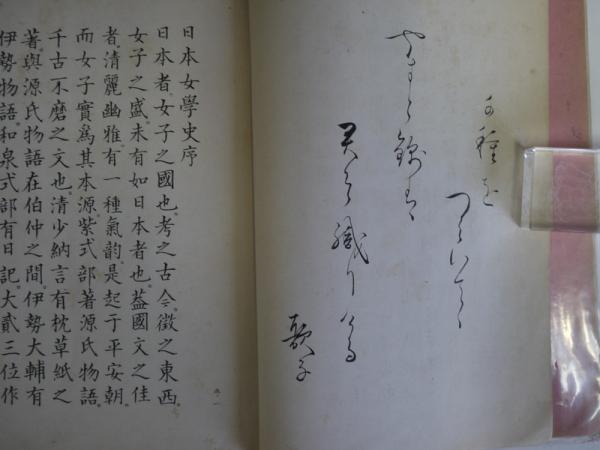 千種を
やまと錦
君 織り
歌子
日本女學史序
日本者。女子之國也。考之古今。徵之東西。
女子之盛。未有如日本者也。蓋國文之佳
者。清麗幽雅。有一種氣韵。是起于平安朝。
而女子實爲其本源。紫式部著源氏物語。
千古不磨之文也。清少納言有枕草紙之
著。與源氏物語在伯仲之間。伊勢大輔有
伊勢物語。和泉式部有日記。大貳三位作